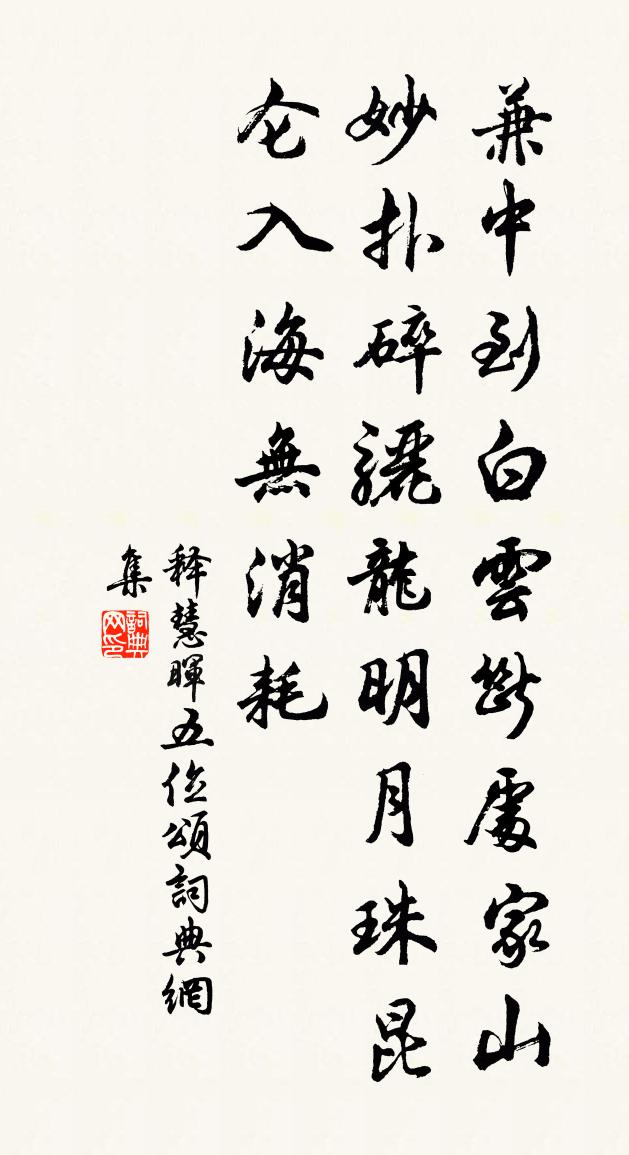 兼中到白雲斷處家山
妙扑碎驪龍明月珠昆
仑入海無消耗
释慧暉五位頌詞典網
集
詞典网印